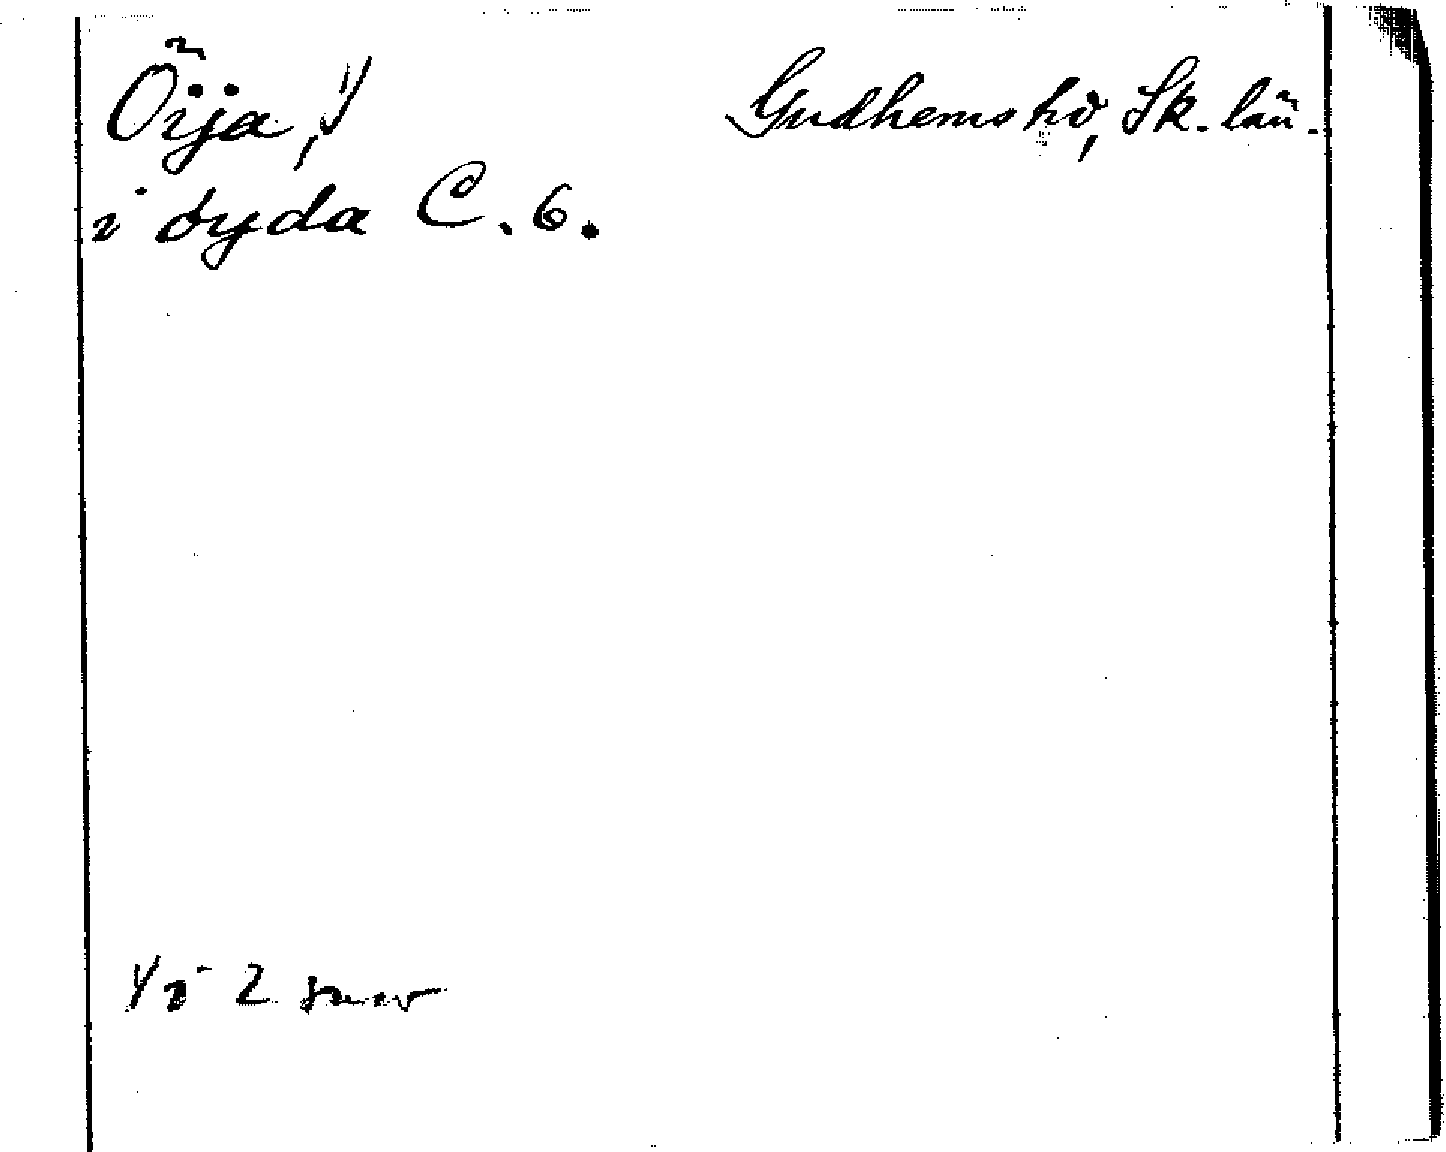 Öija,¹⁾ Gudhems hd, Sk. län.
i öyda C. 6.
1/ i 2 snær